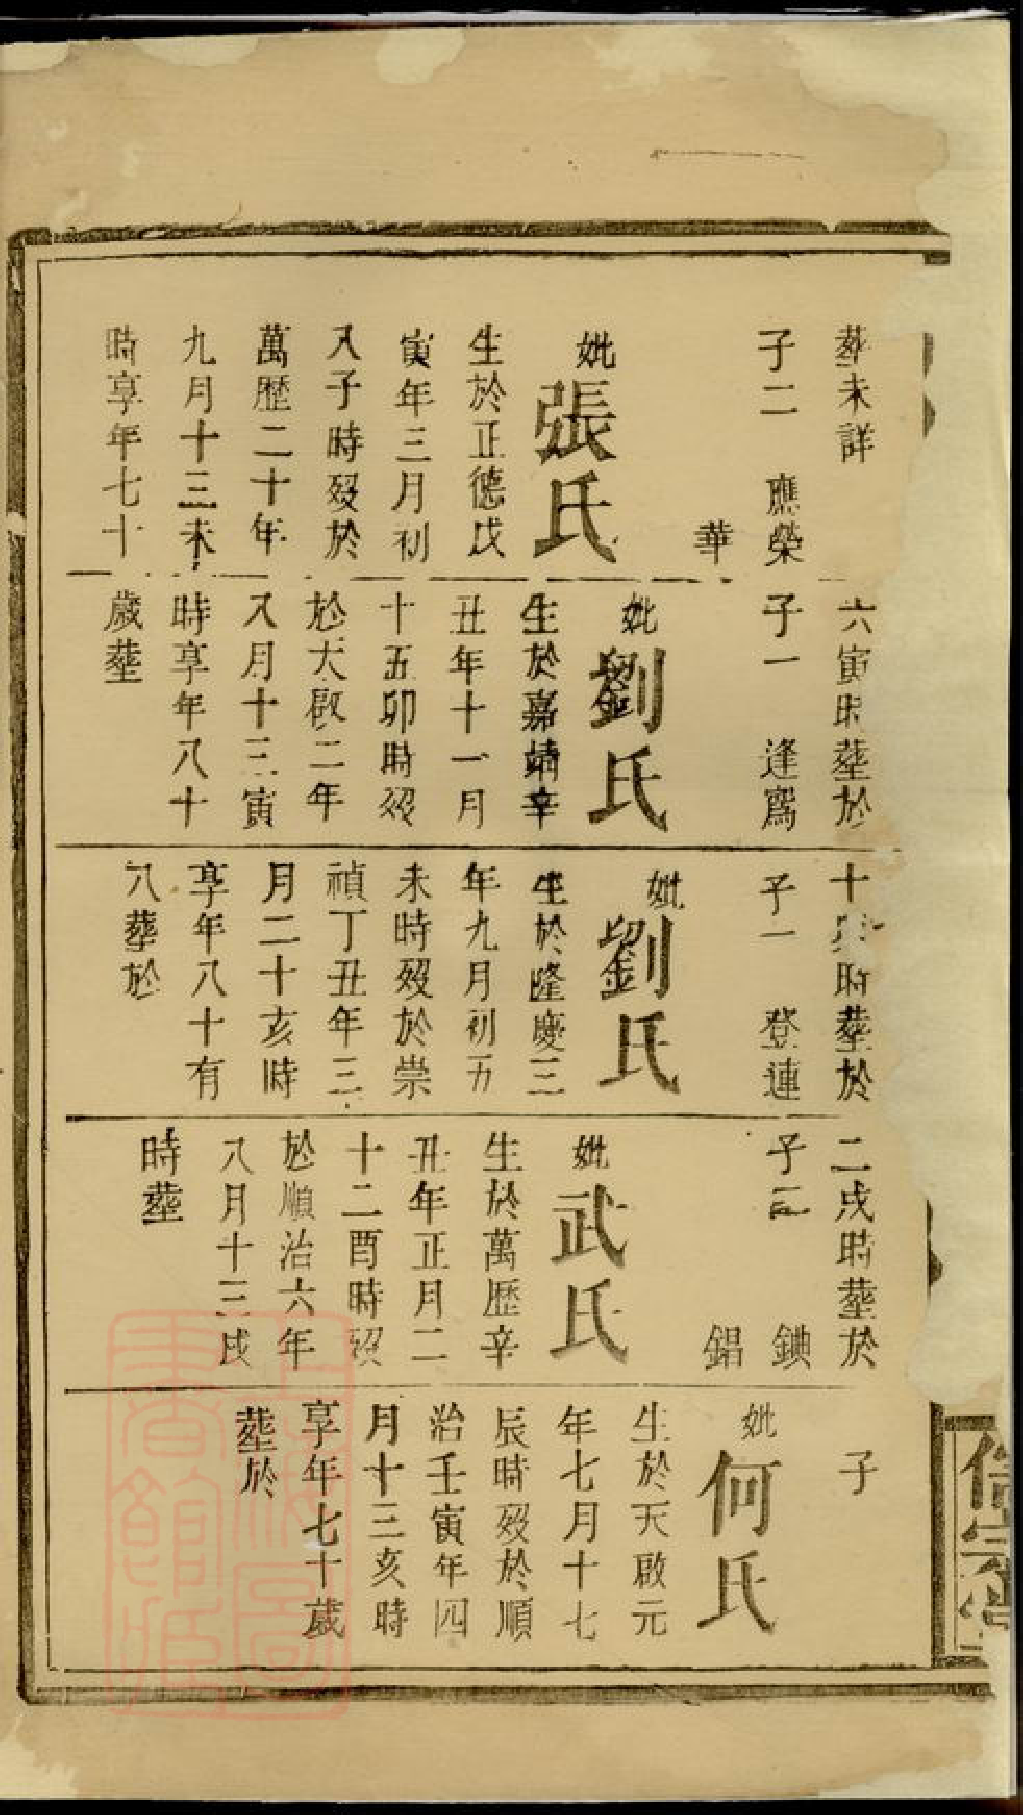 葬未詳
子二 應榮
華
妣張氏
生於正德戊
寅年三月初
八子時殁於
萬歷二十年
九月十三未
時享年七十
六寅時塟於
子一 逢寫
妣劉氏
生於嘉靖辛
丑年十一月
十五卯時殁
於天啟二年
八月十三寅
時享年八十
歲塟
時塟於
子一 登連
妣劉氏
生於隆慶三
年九月初五
未時殁於崇
禎丁丑年三
月二十亥時
享年八十有
八葬於
二戌時塟於
子二 錪
錩
妣武氏
生於萬歷辛
丑年正月二
十二酉時殁
於順治六年
八月十三戌
時塟
子
妣何氏
生於天啟元
年七月十七
辰時殁於順
治壬寅年四
月十三亥時
享年七十歲
塟於
上海圖
書館藏